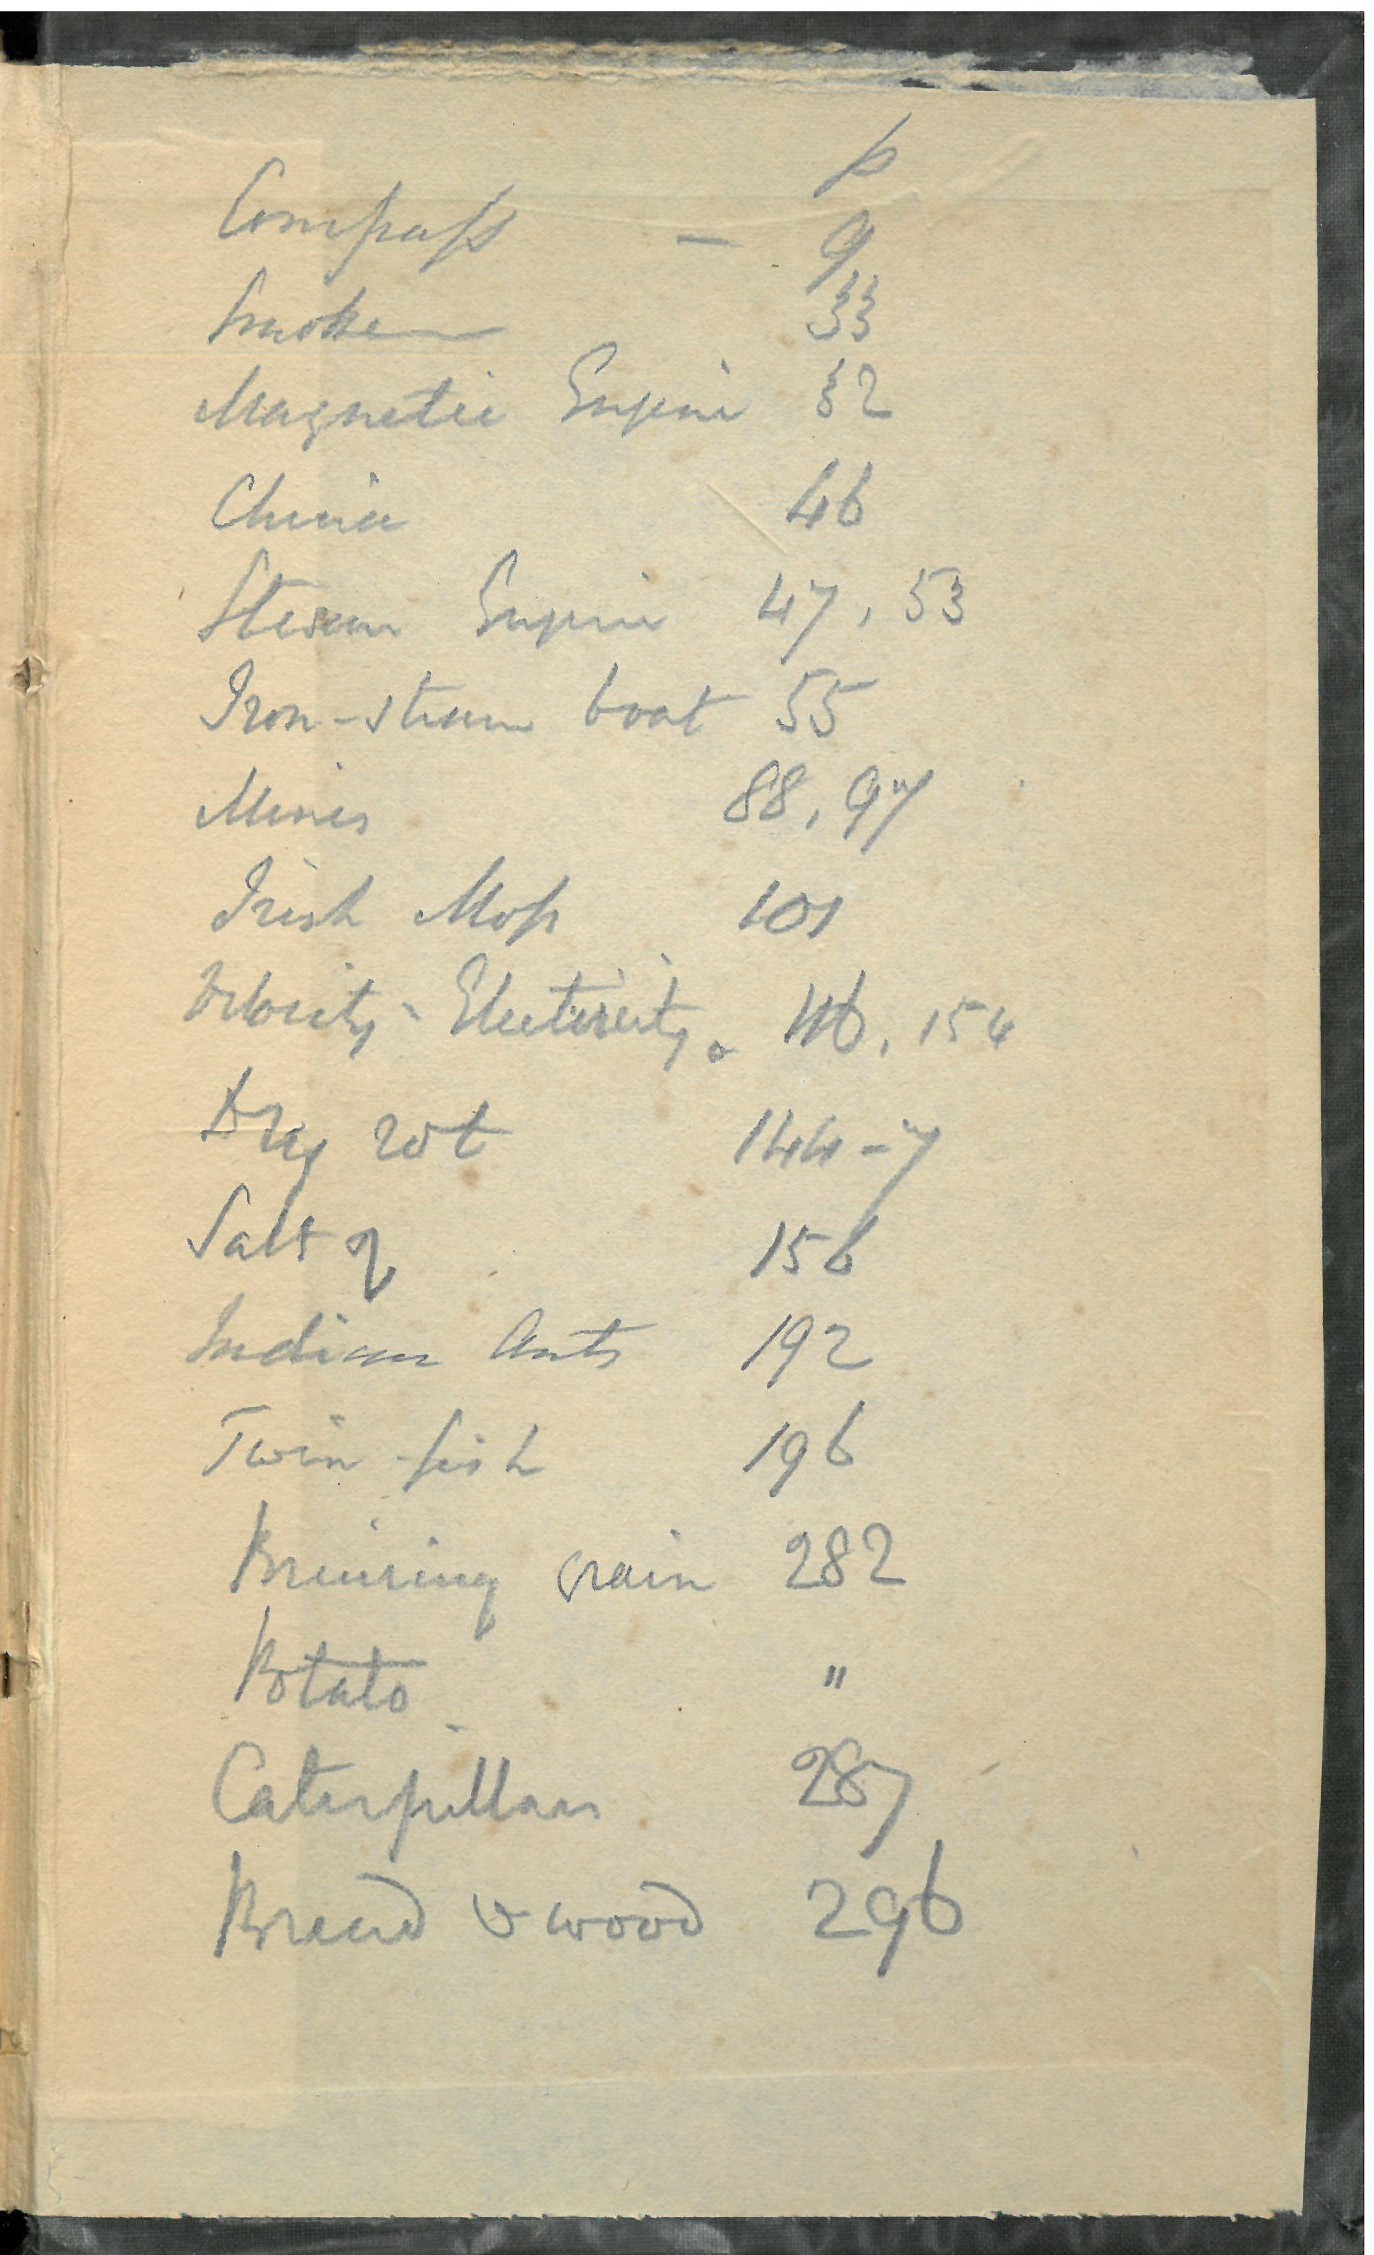 p
Compass — 9
Smoke 33
Magnetic Engine 32
China 46
Steam Engine 47, 53
Iron-steam boat 55
Mines 88, 97
Irish Moss 101
Velocity - Electricity. 116, 154
Dry rot 144-7
Salt of 156
Indian Ants 192
Twin-fish 196
Bruising grain 282
Potato "
Caterpillars 287
Bread & wood 296